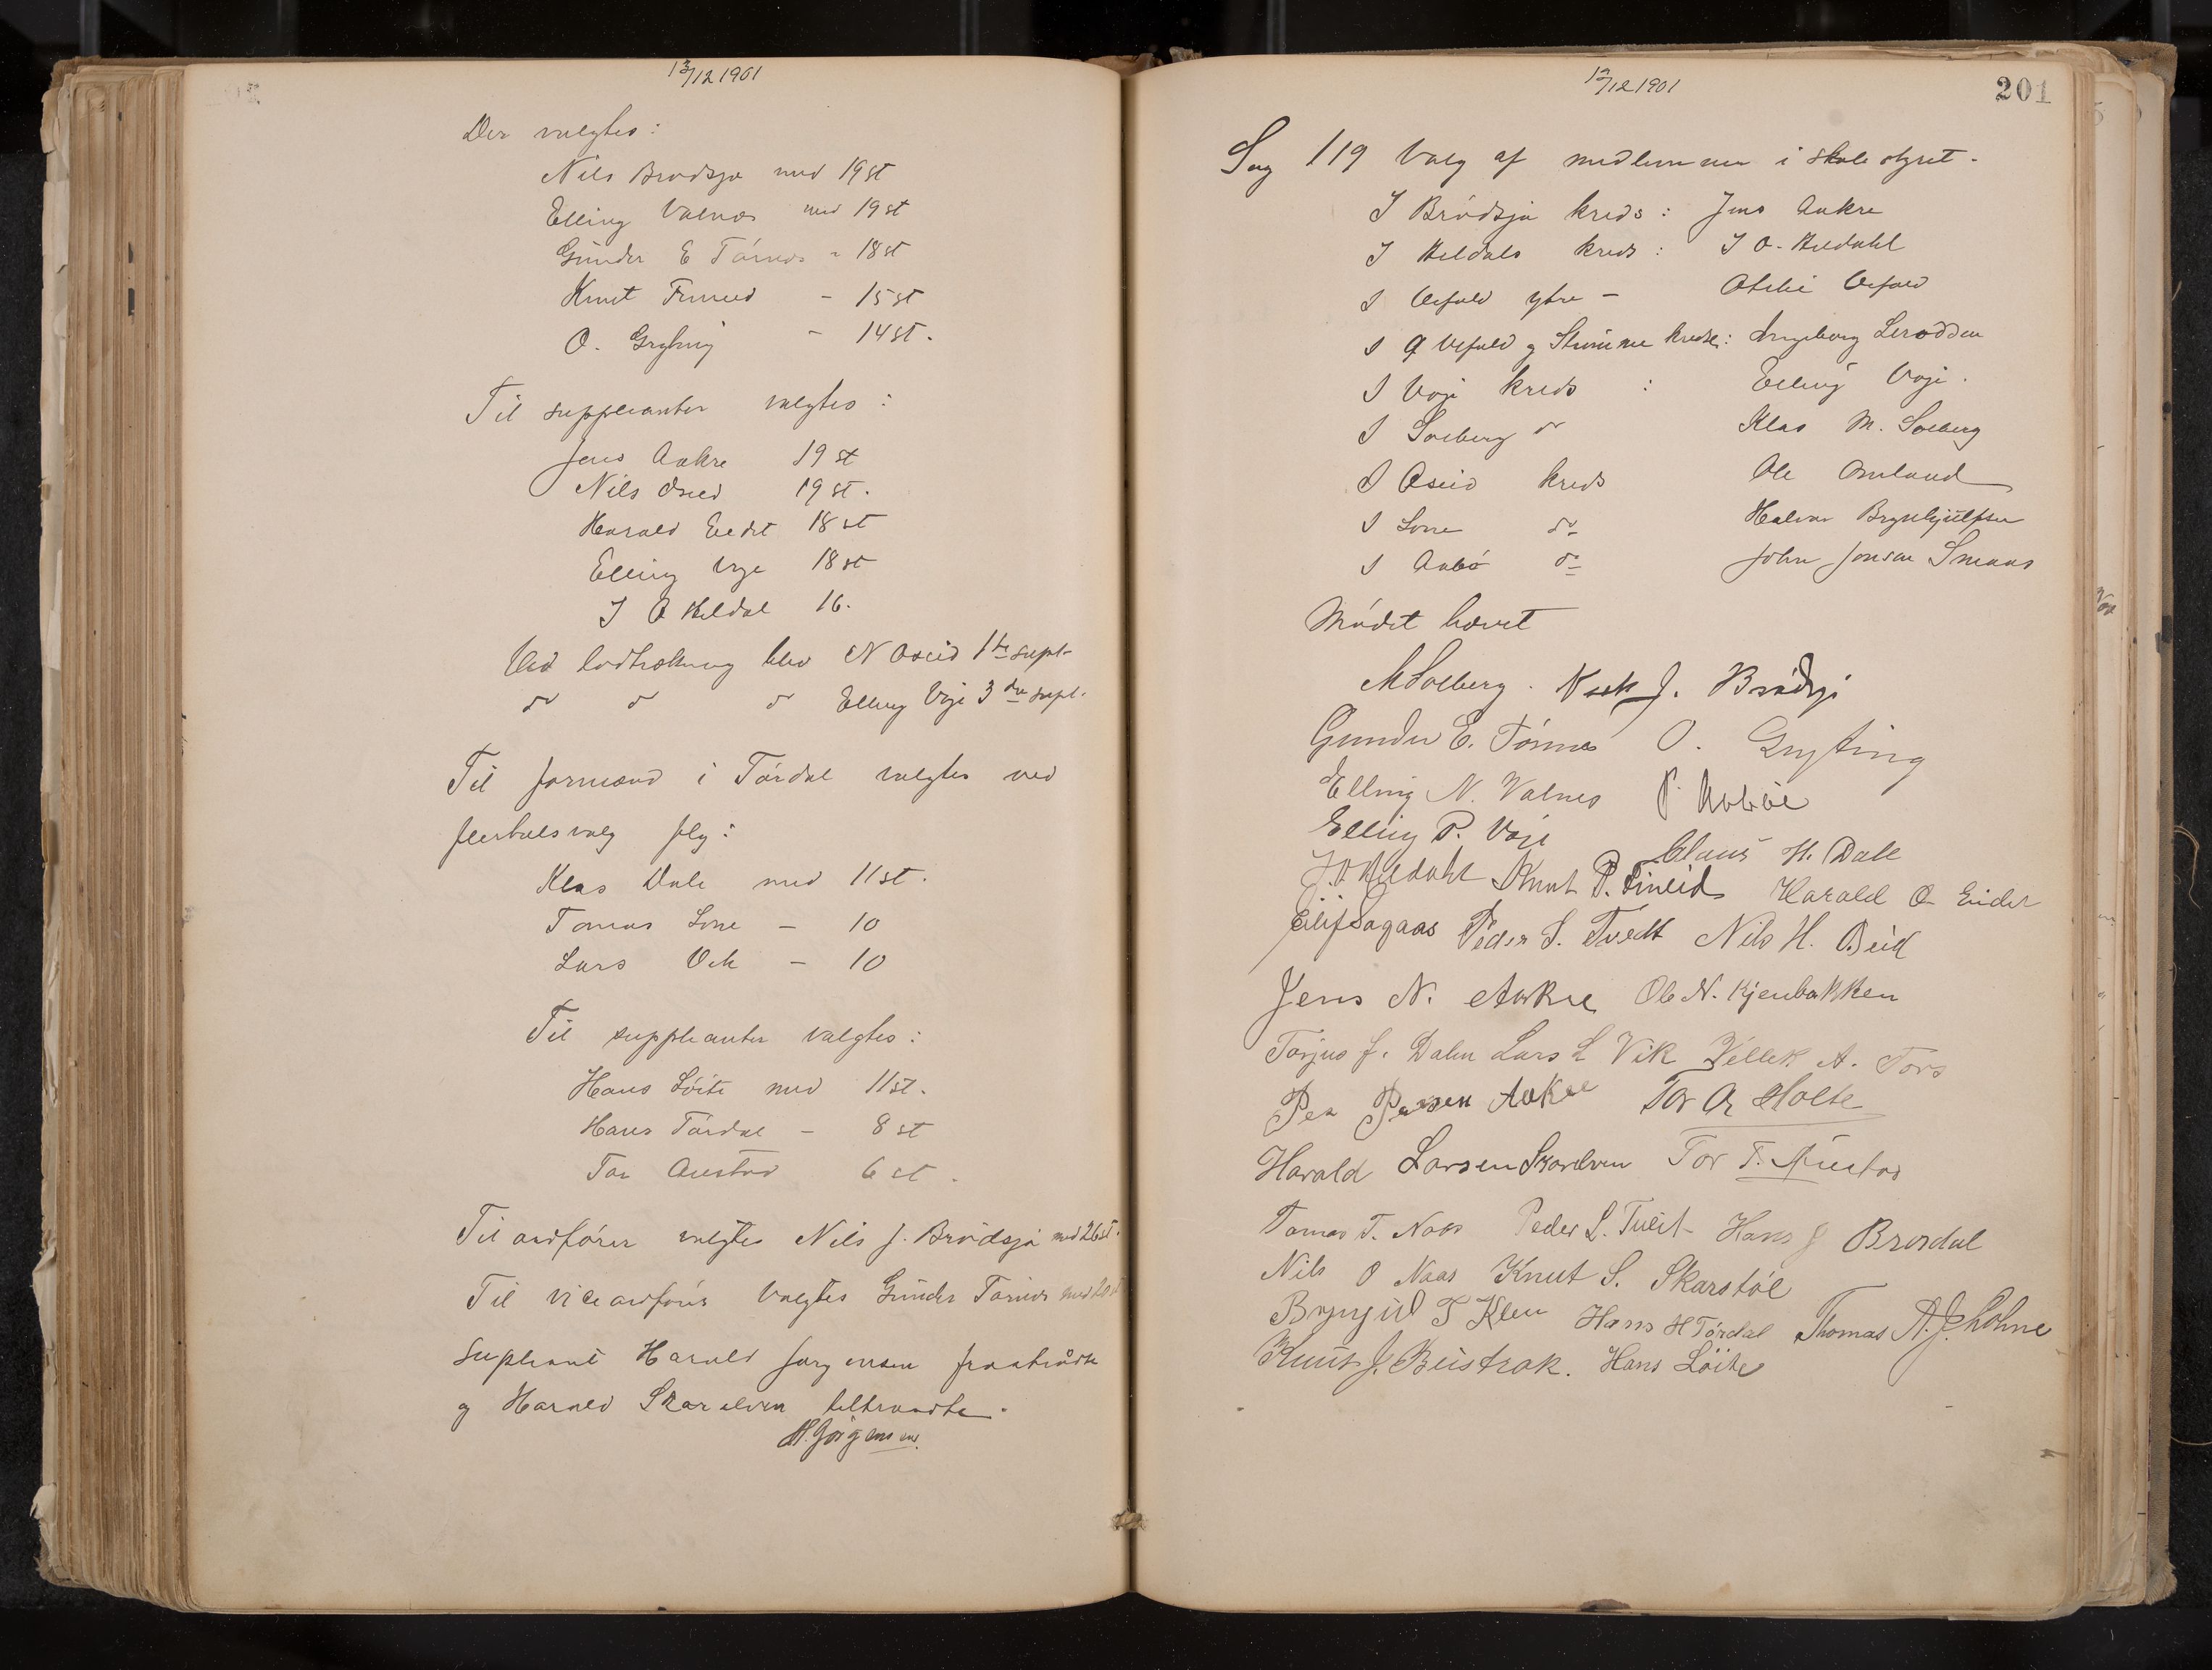 13/12 1901
Der valgtes:
Nils Brødsjø med 19 st
Elling Valnæs med 19 st
Gunder E Tørnes - 18 st
Knut Fineid - 15 st
O. Gryting - 14 st.
Til suppleanter valgtes:
Jens Aakre 19 st
Nils Øseid 19 st.
Harald Eidet 18 st
Elling Voje 18 st
J O Heldal 16.
Ved lodtrækning blev N Øseid 1ste supl.
do do do Elling Voje 3die supl.
Til formænd i Tørdal valgtes ved
flertalsvalg flg:
Klas Dale med 11 st.
Tomas Lone - 10
Lars Vik - 10
Til suppleanter valgtes:
Hans Løite med 11 st.
Hans Tørdal - 8 st
Tor Austad 6 st.
Til ordfører valgtes Nils J. Brødsjø med 26 st.
Til viceordfører valgtes Gunder Tørnes med
Supleant Harald Jørgensen fratraadte
og Harald Skarelven tiltraadte.
H. Jørgensen
12/12 1901
201
Sag 119 Valg af medlemmer i skolestyret.
I Brødsjø kreds: Jens Aakre
I Heldals kreds: J O. Heldahl
I Vefald ytre - Vefald
I Ø Vefald og Strømme kredse: Ingeborg Lerodden
I Voje kreds: Elling Voje.
I Solberg do Klas M. Solberg
I Øseid kreds Ole Omland
I Lone do Halvor Brynhjulfsen
I Aabø do John Jonsen Smaas
Mødet hævet
M Solberg. N J. Brødsjø
Gunder E. Tørnes O. Gryting
Elling N. Valnes P. Aabøe
Elling P. Voje Claus H. Dale
J. O Heldahl Knut P. Fineid Harald O Eidet
Eilif Sagaas Peder S. Tvedt Nils H. Øseid
Jens N. Aakre Ole N. Kjenbakken
Torjus J. Dalen Lars L Vik Vellek A. Fors
Per Persen Aakre Tor A Holte
Harald Larsen Skarelven Tor T. Austad
Tomas T. Naas Peder L. Tveit Hans J Brordal
Nils O Naas Knut S. Skarstøl
Bryngil T Kleiv Hans H Tørdal Thomas A. J. Lohne
Knut J. Bustrak. Hans Löite